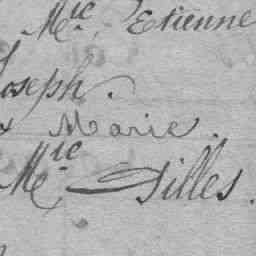 Mic Etienne
Joseph.
x Marie.
Mic Gilles.